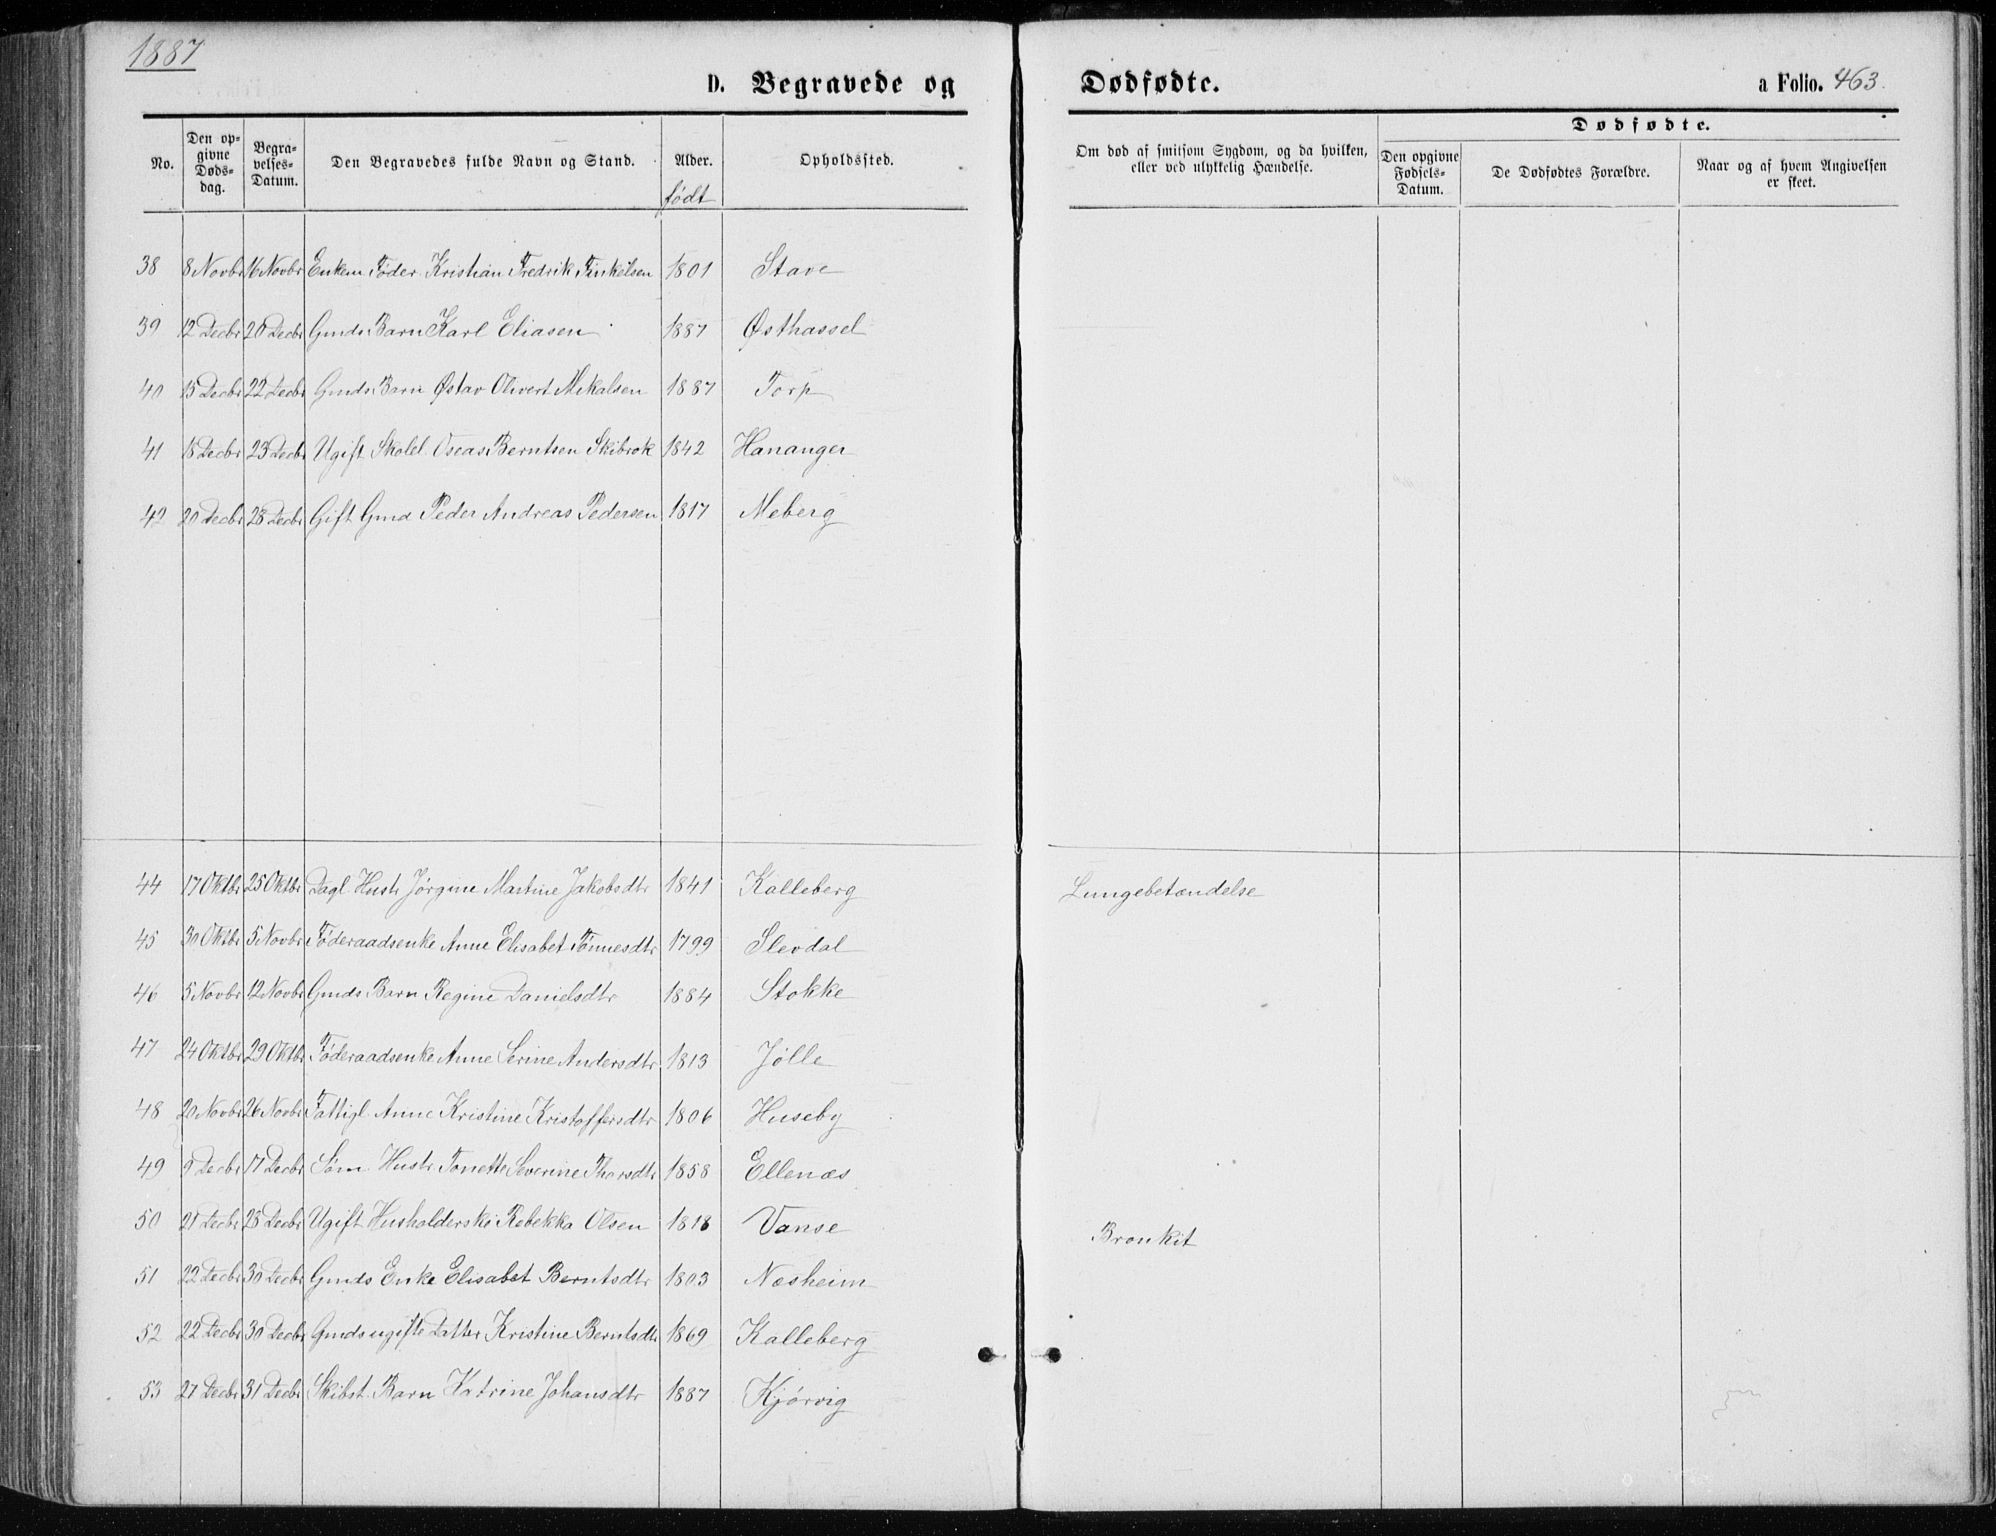 1887
D. Begravede og Dødfødte. a Folio. 463.
No. Den opgivne Dødsdag. Begravelses-Datum. Den Begravedes fulde Navn og Stand. Alder. født Opholdssted. Om død af smitsom Sygdom, og da hvilken, eller ved ulykkelig Hændelse. Dødfødte. Den opgivne Fødsels-Datum. De Dødfødtes Forældre. Naar og af hvem Angivelsen er skeet.
38 8 Novbr 16 Novbr Enkem Føder Kristian Fredrik Finkelsen 1801 Stave
39 12 Decbr 20 Decbr Gmds Barn Karl Eliasen 1887 Østhassel
40 15 Decbr 22 Decbr Gmds Barn Østav Olivert Mikalsen 1887 Torp
41 18 Decbr 23 Decbr Ugift Skolel. Oseas Berntsen Skibrok 1842 Hananger
42 20 Decbr 28 Decbr Gift Gmd Peder Andreas Pedersen 1817 Meberg
44 17 Oktbr 25 Oktbr Dagl. Hustr Jørgine Martine Jakobsdtr 1841 Kalleberg Lungebetændelse
45 30 Oktbr 5 Novbr Føderaadsenke Anne Elisabet Tønnesdtr 1799 Slevdal
46 5 Novbr 12 Novbr Gmds Barn Regine Danielsdtr 1884 Stokke
47 24 Oktbr 29 Oktbr Føderaadsenke Anne Serine Andersdtr 1813 Jølle
48 20 Novbr 26 Novbr Fattigl. Anne Kristine Kristoffersdtr 1806 Huseby
49 9 Decbr 17 Decbr Søm. Hustr Tonette Severine Thorsdtr 1858 Ellenæs
50 21 Decbr 23 Decbr Ugift Husholderske Rebekka Olsen 1818 Vanse Bronkit
51 22 Decbr 30 Decbr Gmds Enke Elisabet Berntsdtr 1803 Næsheim
52 22 Decbr 30 Decbr Gmds ugifte Datter Kristine Berntsdtr 1869 Kalleberg
53 27 Decbr 31 Decbr Skibst. Barn Katrine Johansdtr 1887 Kjørvig